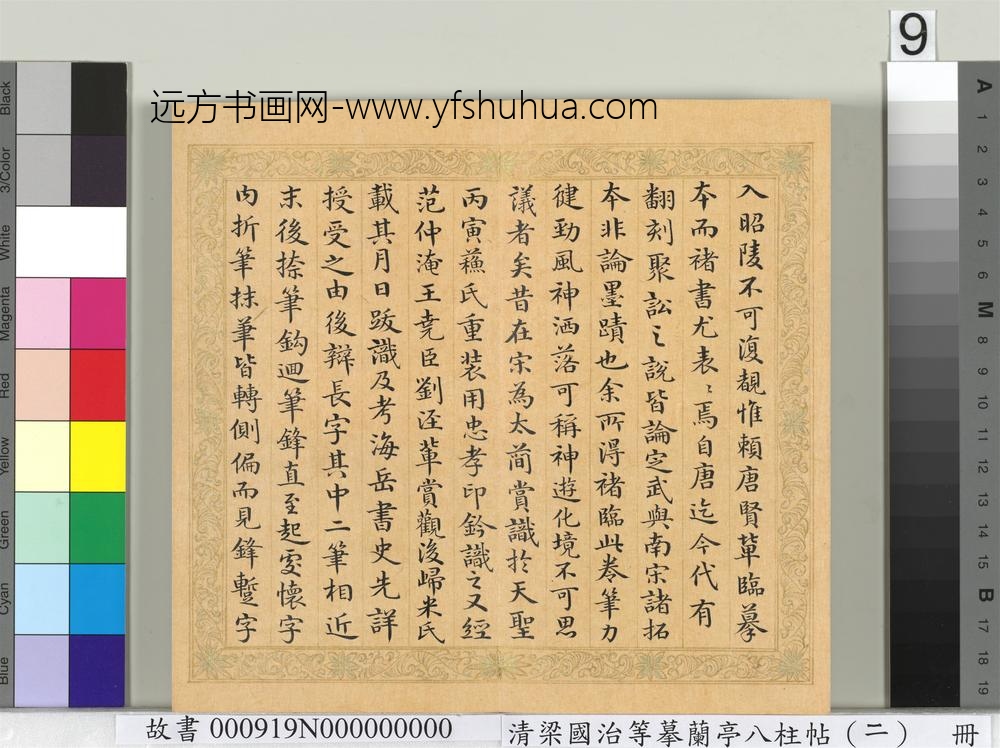 9
远方书画网-www.yfshuhua.com
入昭陵不可復覩惟賴唐賢輩臨摹
本而褚書尤表〻焉自唐迄今代有
翻刻聚訟之說皆論定武與南宋諸拓
本非論墨蹟也余所得褚臨此卷筆力
健勁風神洒落可稱神遊化境不可思
議者矣昔在宋為太簡賞識於天聖
丙寅蘓氏重装用忠孝印鈐識之又經
范仲淹王堯臣劉涇輩賞觀後歸米氏
載其月日跋識及考海岳書史先詳
授受之由後辯長字其中二筆相近
末後捺筆鈎迴筆鋒直至起處懷字
内折筆抹筆皆轉側偏而見鋒蹔字
Black
3/Color
White
Magenta
Red
Yellow
Green
Cyan
Blue
A
1
2
3
4
5
6
M
8
9
10
11
12
13
14
15
B
17
18
19
故書 000919N000000000
清梁國治等摹蘭亭八柱帖（二） 冊